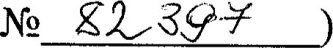 № 82397 )